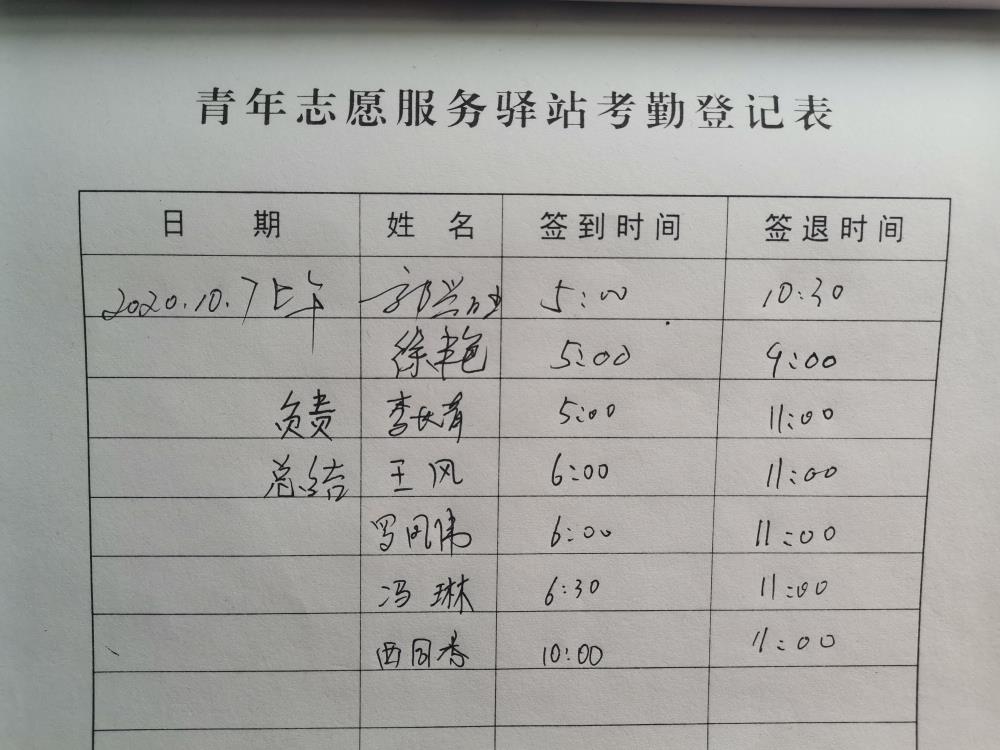 青年志愿服务驿站考勤登记表
日 期 姓 名 签到时间 签退时间
2020.10.7上午 郭兴 5:00 10:30
徐丰艳 5:00 9:00
负责 李长青 5:00 11:00
总结 王风 6:00 11:00
罗同伟 6:00 11:00
冯琳 6:30 11:00
西同春 10:00 11:00